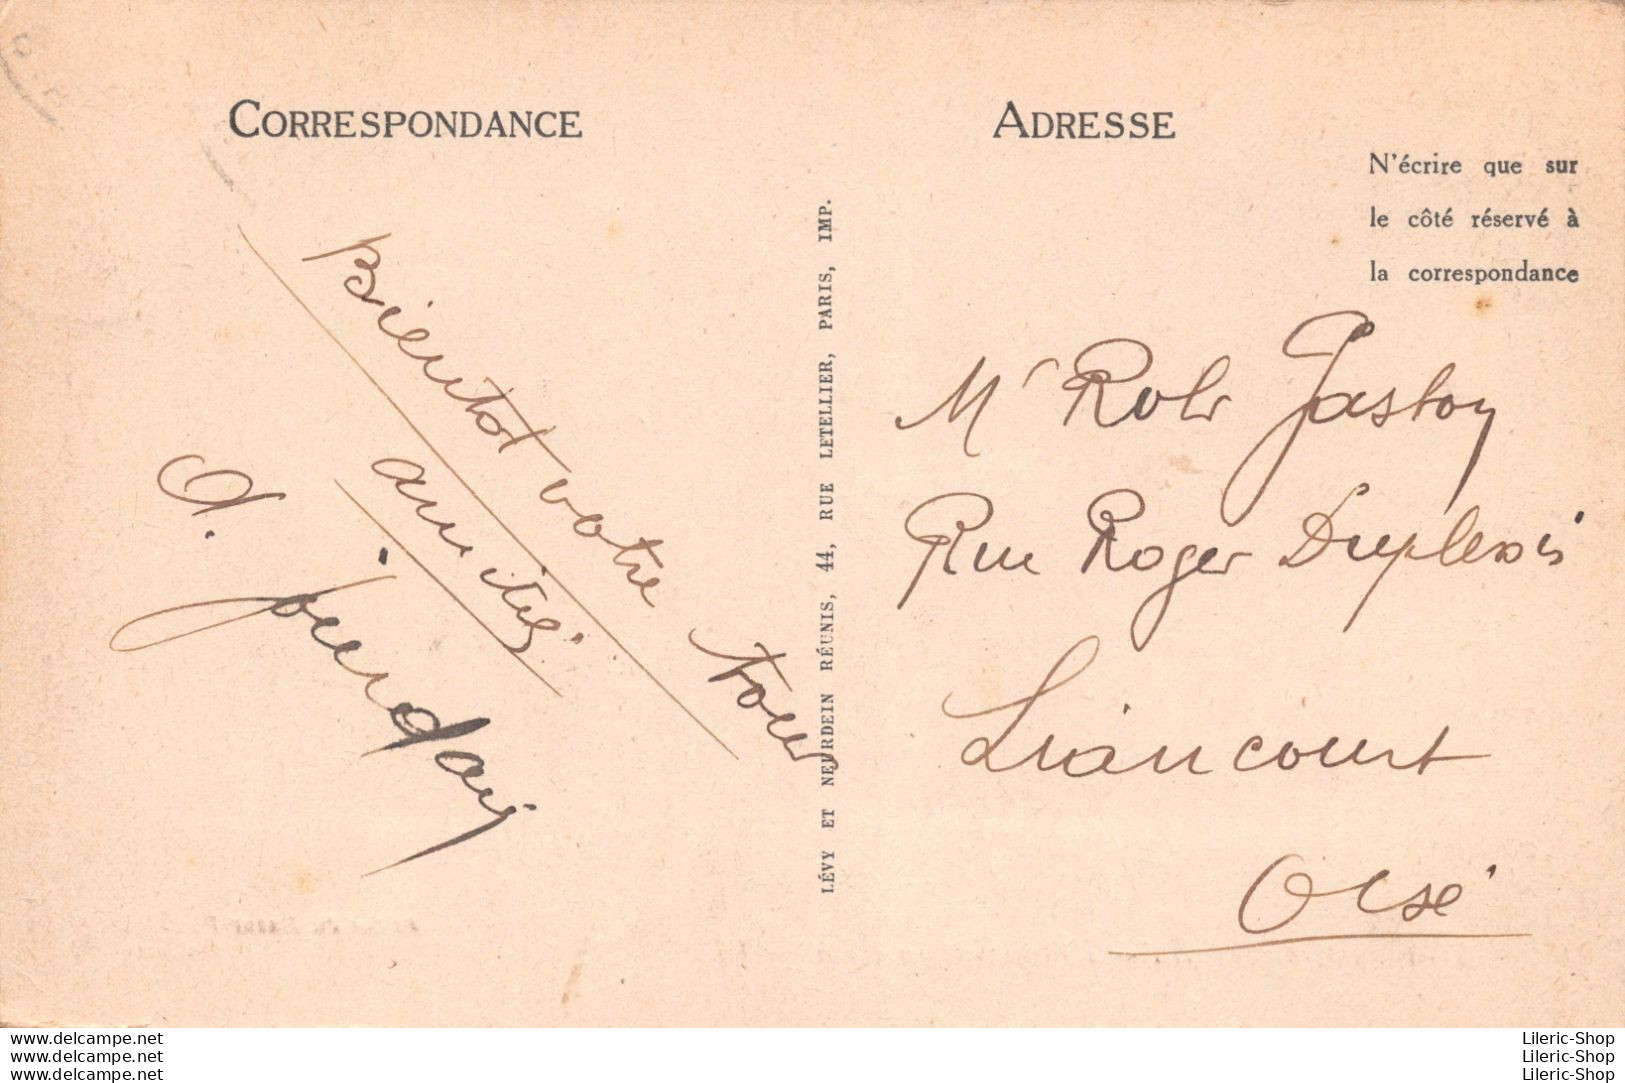 CORRESPONDANCE
Bientot votre tour
amitiés
A. Jourdain
LÉVY ET NEURDEIN RÉUNIS, 44, RUE LETELLIER, PARIS, IMP.
ADRESSE
N'écrire que sur
le côté réservé à
la correspondance
Mr Robr Gaston
Rue Roger Duplessis
Liancourt
Oise
www.delcampe.net
www.delcampe.net
www.delcampe.net
Lileric-Shop
Lileric-Shop
Lileric-Shop